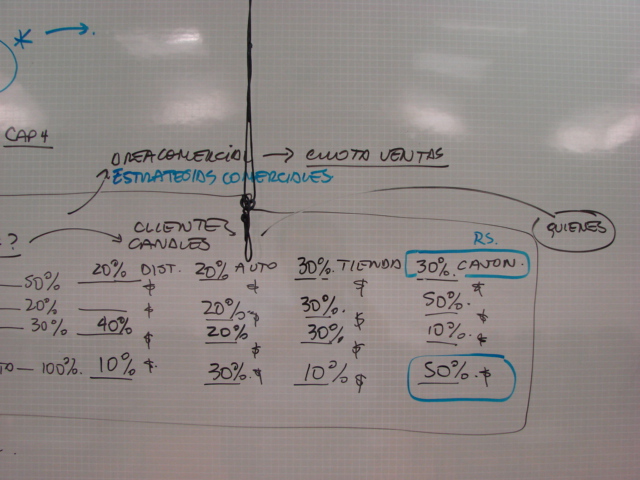 *
CAP 4
AREA COMERCIAL → CUOTA VENTAS
ESTRATEGIAS COMERCIALES
QUIENES
CLIENTES
CANALES
?
RS.
20% DIST. 20% AUTO 30% TIENDA 30%. CANON.
50% $ $ $ $
20% 20% $ 30%. 50%. $
30% 40% $ 20% $ 30%. $ 10%. $
TO — 100%. 10% $. 30%. $ 10% $ 50%. $